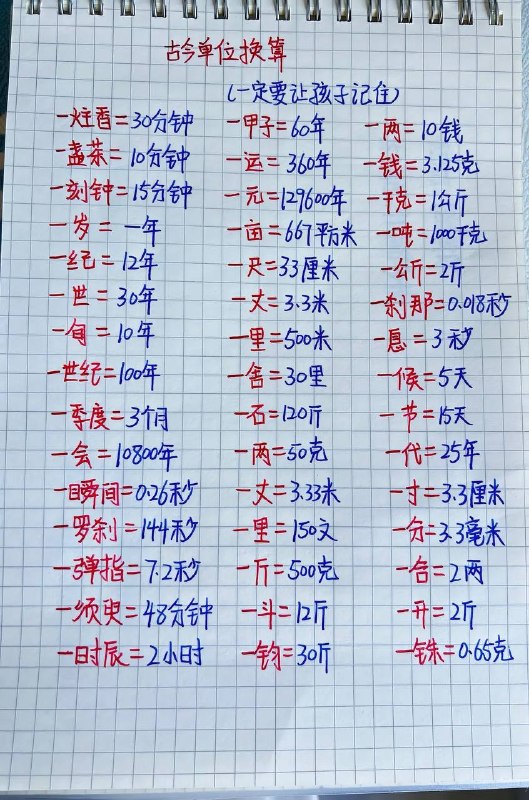 古今单位换算
(一定要让孩子记住)
一炷香=30分钟 一甲子=60年 一两=10钱
一盏茶=10分钟 一运=360年 一钱=3.125克
一刻钟=15分钟 一元=129600年 一千克=1公斤
一岁=一年 一亩=667平方米 一吨=1000千克
一纪=12年 一尺=33厘米 一公斤=2斤
一世=30年 一丈=3.3米 一刹那=0.018秒
一旬=10年 一里=500米 一息=3秒
一世纪=100年 一舍=30里 一候=5天
一季度=3个月 一石=120斤 一节=15天
一会=10800年 一两=50克 一代=25年
一瞬间=0.26秒 一丈=3.33米 一寸=3.3厘米
一罗刹=144秒 一里=150丈 一分=3.3毫米
一弹指=7.2秒 一斤=500克 一合=2两
一须臾=48分钟 一斗=12斤 一升=2斤
一时辰=2小时 一钧=30斤 一铢=0.65克